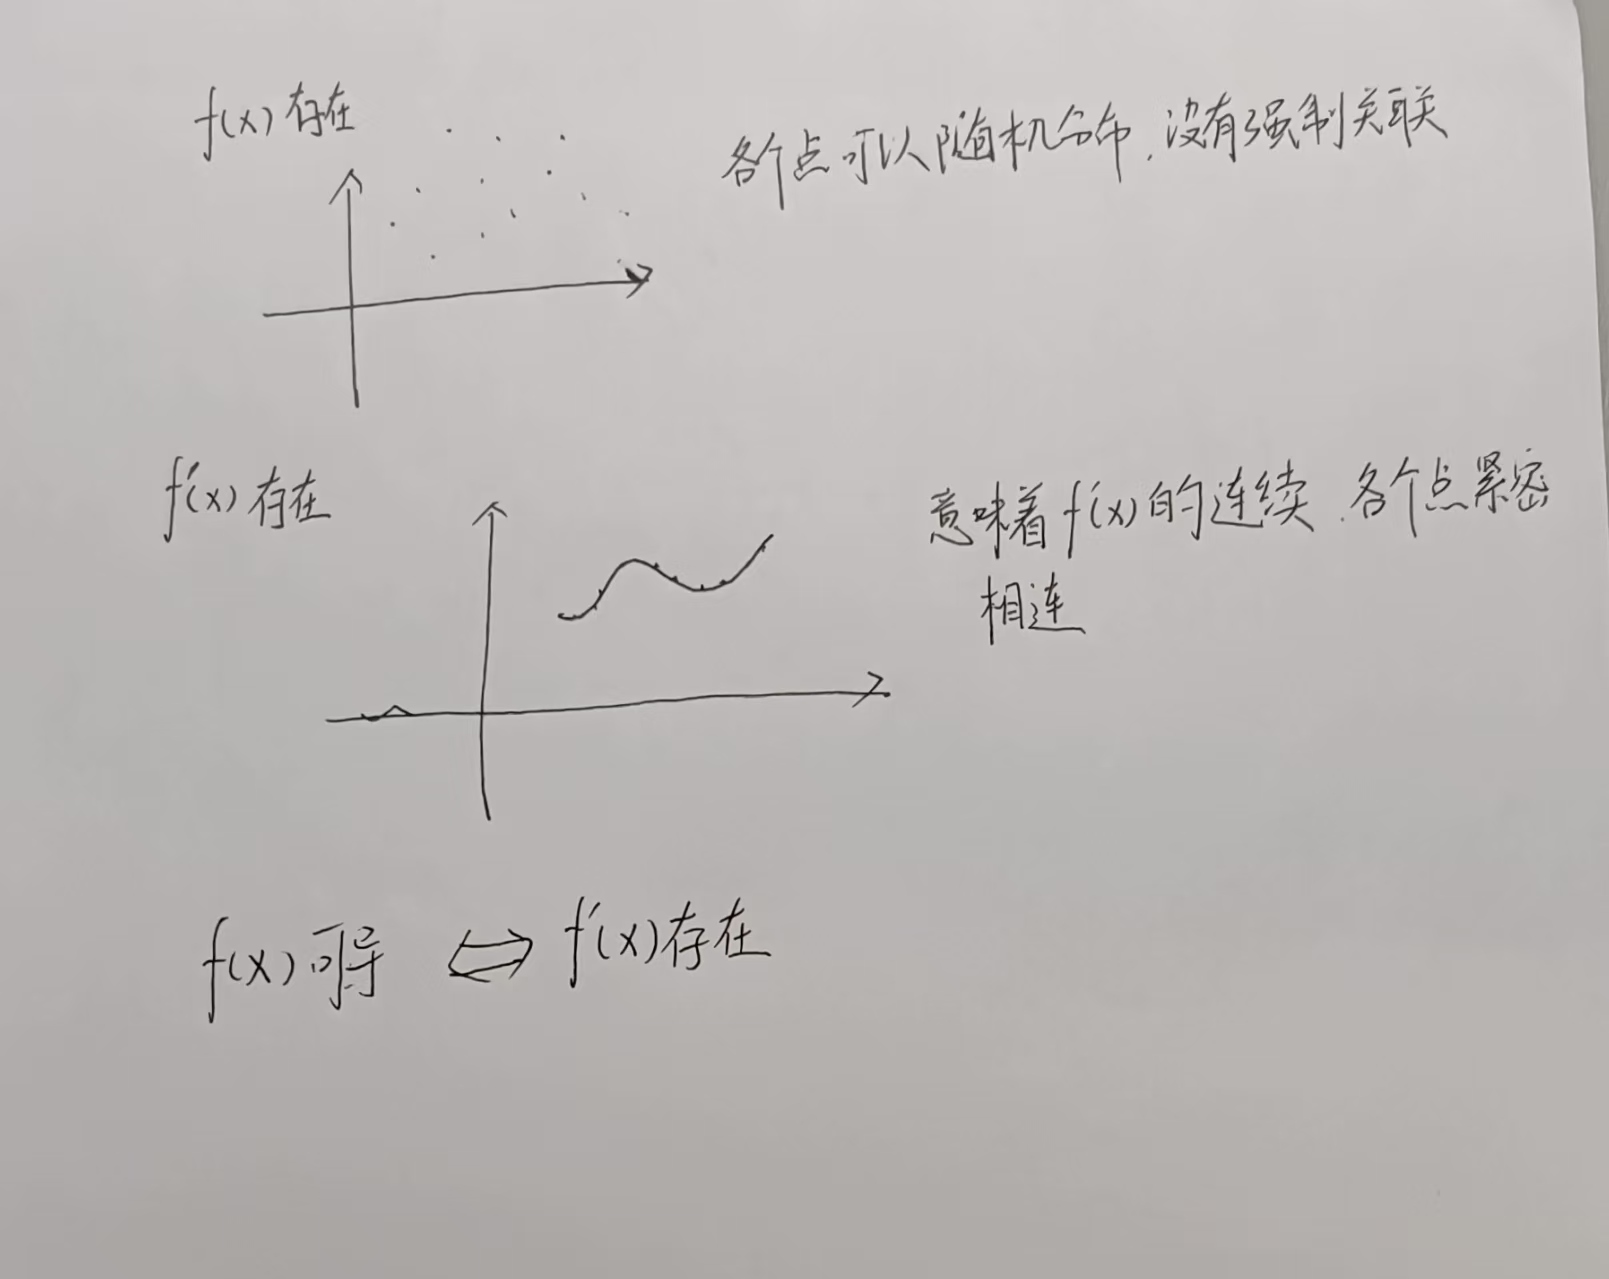 f(x)存在
各个点可以随机分布,没有强制关联
f'(x)存在
意味着f'(x)的连续.各个点紧密
相连
f(x)可导 ⇔ f'(x)存在